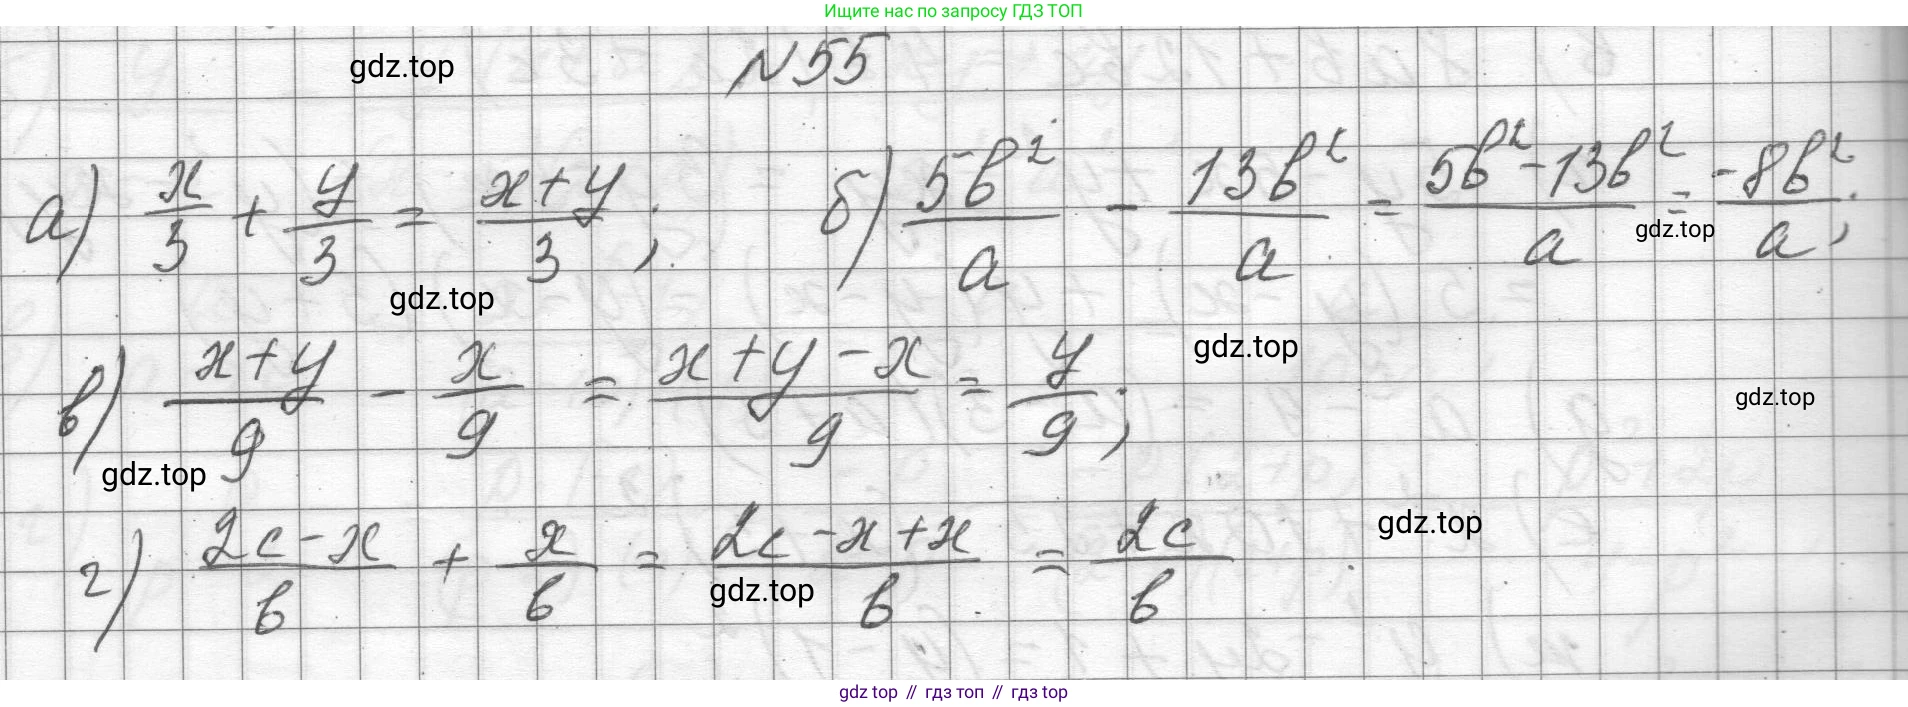 Ищите нас по запросу ГДЗ ТОП
gdz.top
N55
а) x/3 + y/3 = (x+y)/3; б) 5b²/a - 13b²/a = (5b²-13b²)/a = -8b²/a;
gdz.top
gdz.top
gdz.top
в) (x+y)/9 - x/9 = (x+y-x)/9 = y/9;
gdz.top
gdz.top
г) (2c-x)/b + x/b = (2c-x+x)/b = 2c/b
gdz.top
gdz.top
gdz top // гдз топ // гдз top